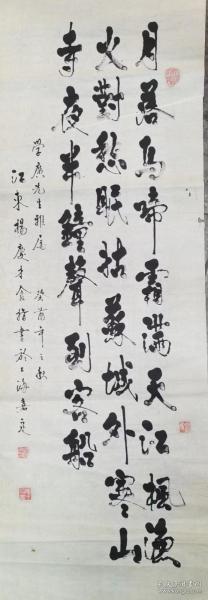 月落烏啼霜满天江楓漁
火對愁眠姑蘇城外寒山
寺夜半鐘聲到客船
學廣先生雅属 癸酉年之秋
江東楊慶才含指書於上海